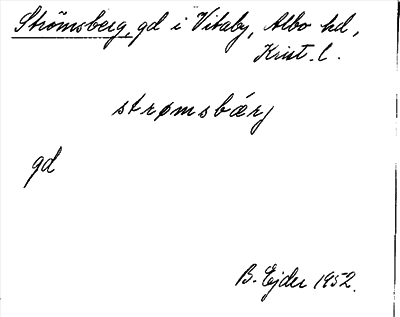 Strömsberg, gd i Vitaby, Albo hd,
Krist. l.
strømsbærj
gd
B. Ejder 1952.